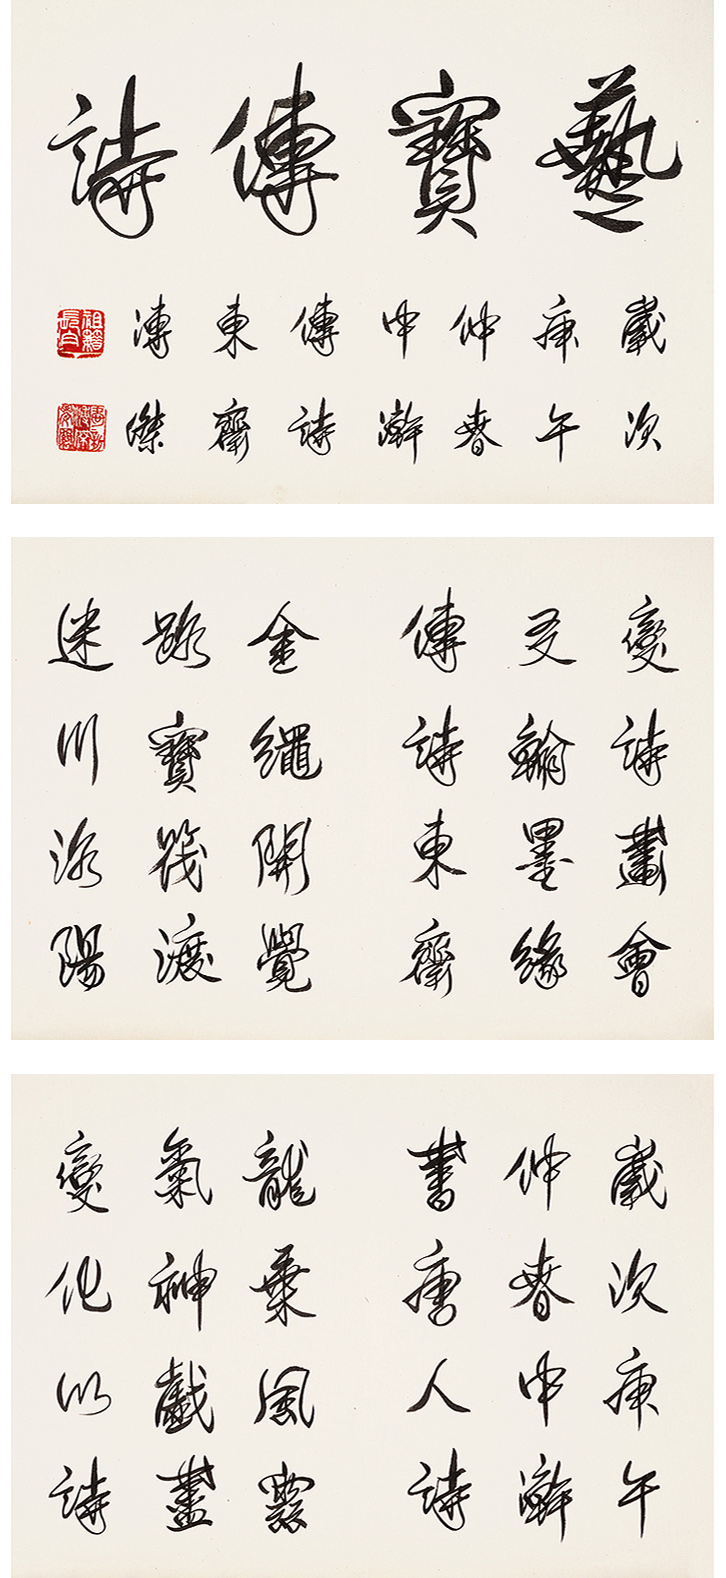 藝寶傳詩
歲次
庚午
仲春
中澣
傳詩
東齋
溥傑
祖籍長白
變詩畫會
翰墨緣
傳詩東齋
金繩開覺
路寶筏渡
迷川洛陽
歲次庚午
仲春中澣
書唐人詩
龍乘風靈
氣神戲盡
變化以詩